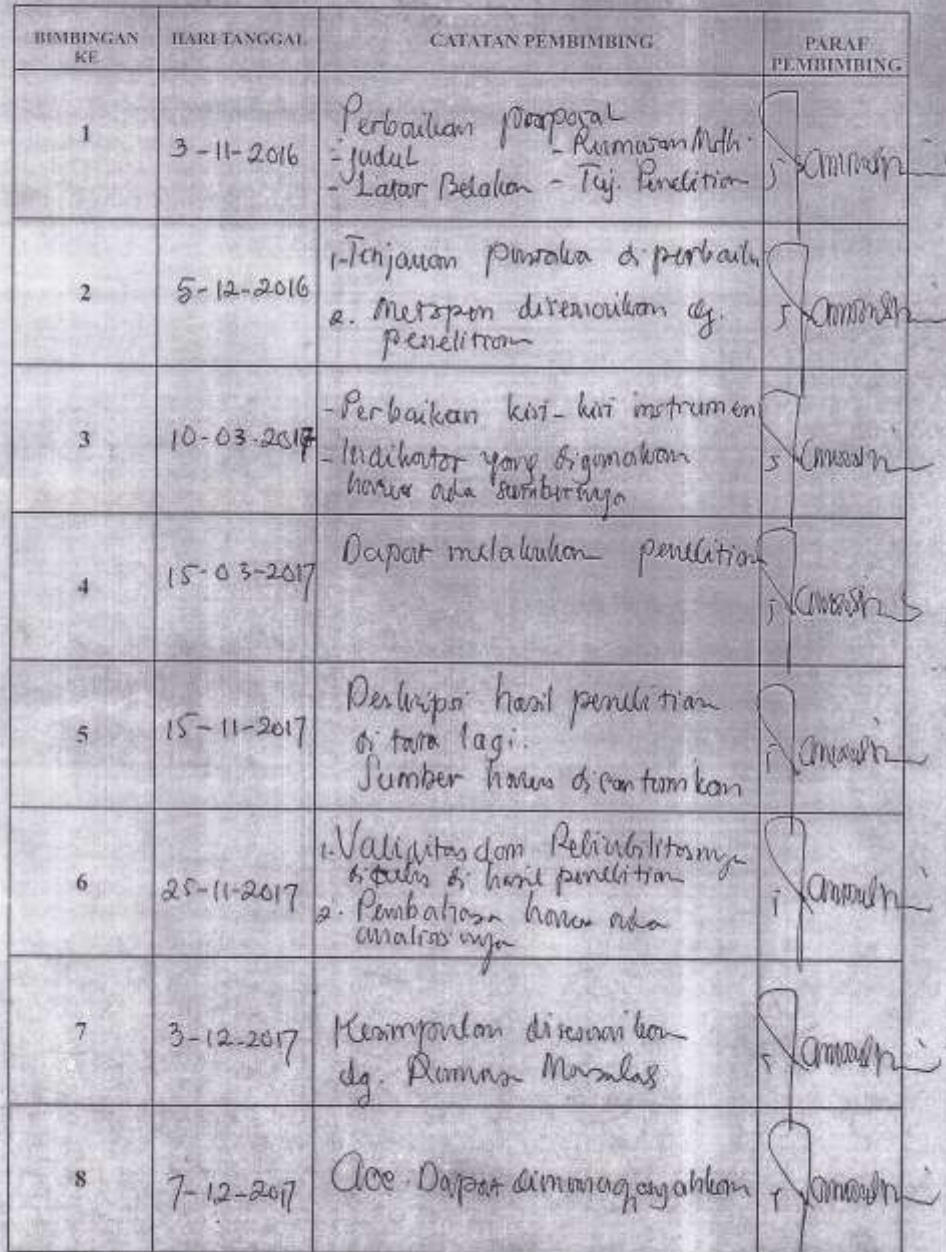 BIMBINGAN KE HARI/TANGGAL CATATAN PEMBIMBING PARAF PEMBIMBING
1 3-11-2016 Perbaikan proposal
- judul - Rumusan Mslh.
- Latar Belakan - Tuj. Penelitian
2 5-12-2016 1. Tinjauan pustaka diperbaiki
2. Metopen disesuaikan dg. penelitian
3 10-03-2017 - Perbaikan kisi-kisi instrumen
- Indikator yang digunakan
harus ada sumbernya
4 15-03-2017 Dapat melakukan penelitian
5 15-11-2017 Deskripsi hasil penelitian
di tata lagi.
Sumber harus dicantumkan
6 25-11-2017 1. Validitas dan Reliabilitasnya
ditulis di hasil penelitian
2. Pembahasa harus ada
analisisnya
7 3-12-2017 Kesimpulan disesuaikan
dg. Rumusan Masalah
8 7-12-2017 Acc Dapat